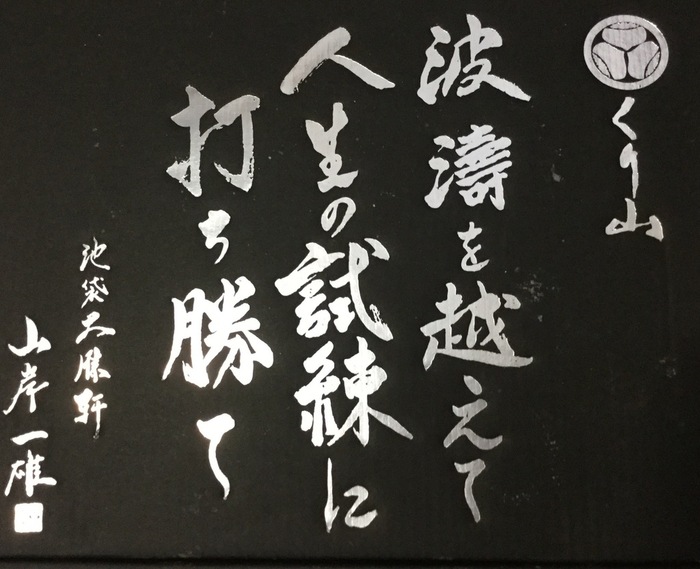 くり山
波濤を越えて
人生の試練に
打ち勝て
池袋大勝軒
山岸一雄